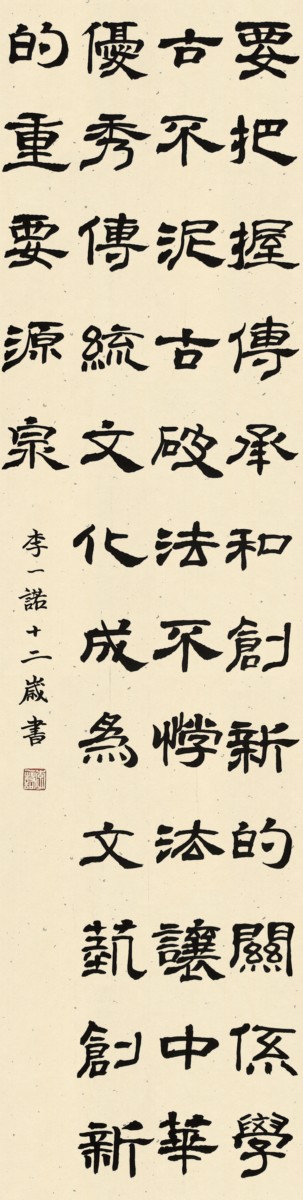 要把握傳承和創新的關係學
古不泥古破法不悖法讓中華
優秀傳統文化成為文藝創新
的重要源泉
李一諾十二歲書